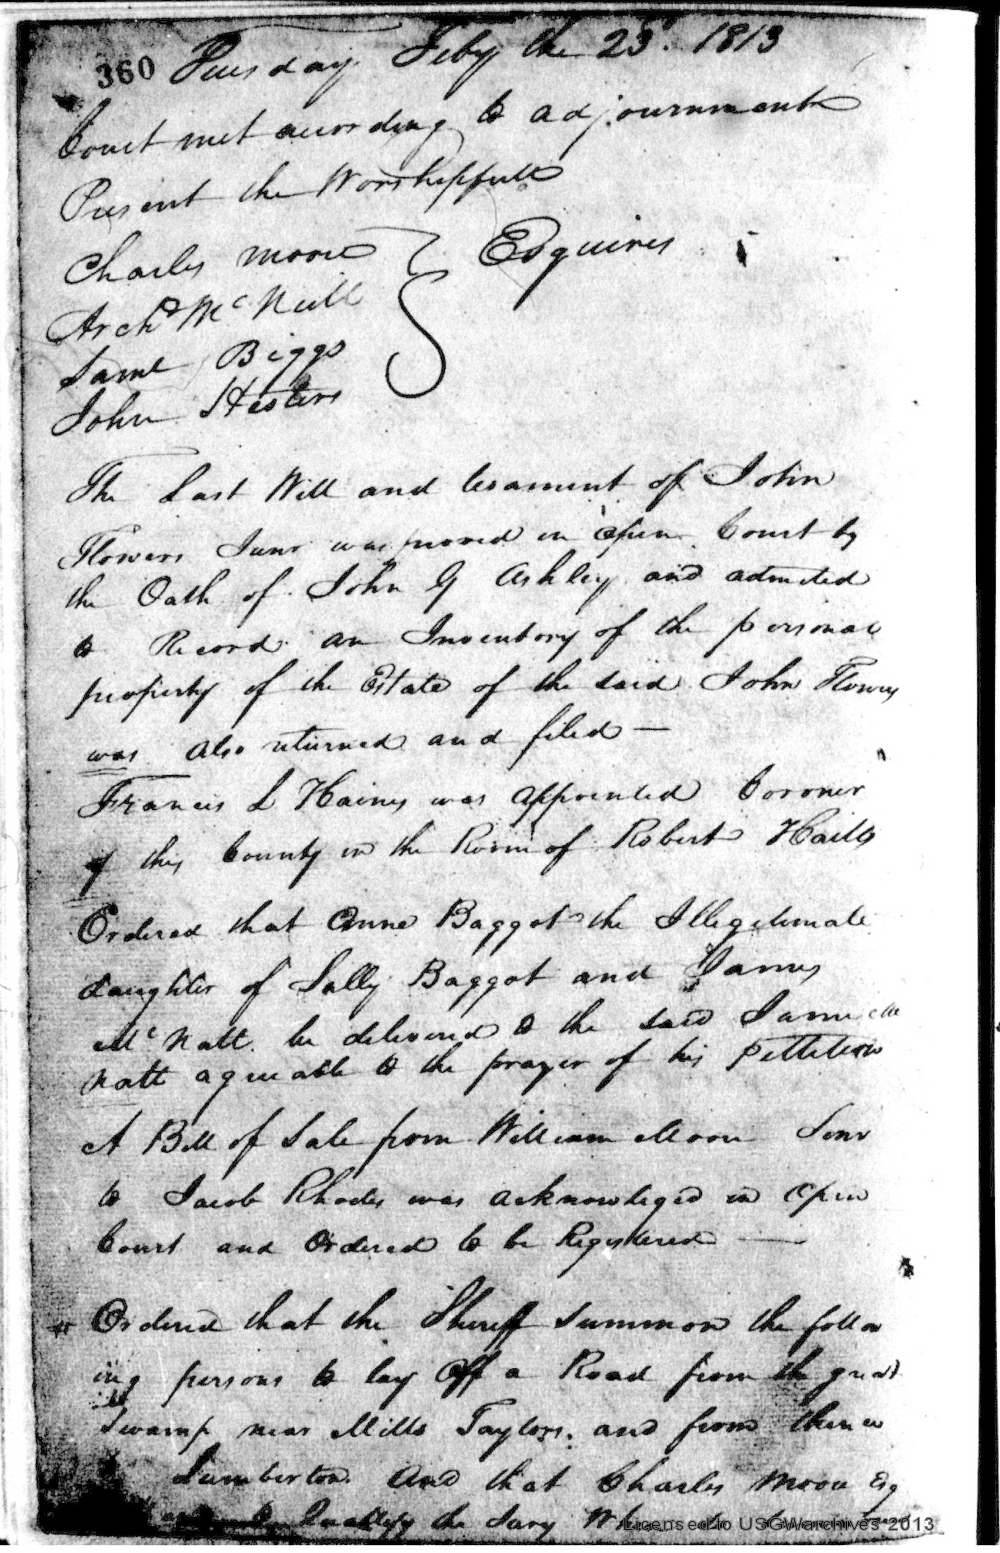 360 Tuesday Feby the 23d. 1813
Court met according to adjournment
Present the Worshipfull
Charles Moore Esquires
Archd McNeill
Saml Biggs
John Hesters
The Last Will and tesament of John
Flowers Junr was proved in open Court by
the Oath of John G Ashley and admited
to Record an Inventory of the personal
property of the Estate of the said John Flowers
was also returned and filed —
Francis L Haines was appointed Coroner
of this County in the Room of Robert Hails
Ordered that Anne Baggot the Illegitimate
daughter of Sally Baggot and James
McNatt be delivered to the said James Mc
Natt agreeable to the prayer of his Petteteon
A Bill of Sale from William Moore Senr
to Jacob Rhodes was acknowleged in open
Court and Ordered to be Registered —
Ordered that the Sheriff Summon the follow
ing persons to lay Off a Road from the great
Swamp near Mills Taylors. and from thence
Lumberton. And that Charles Moore Esq
Quallify the Jury
Licensed to USGWarchives 2013